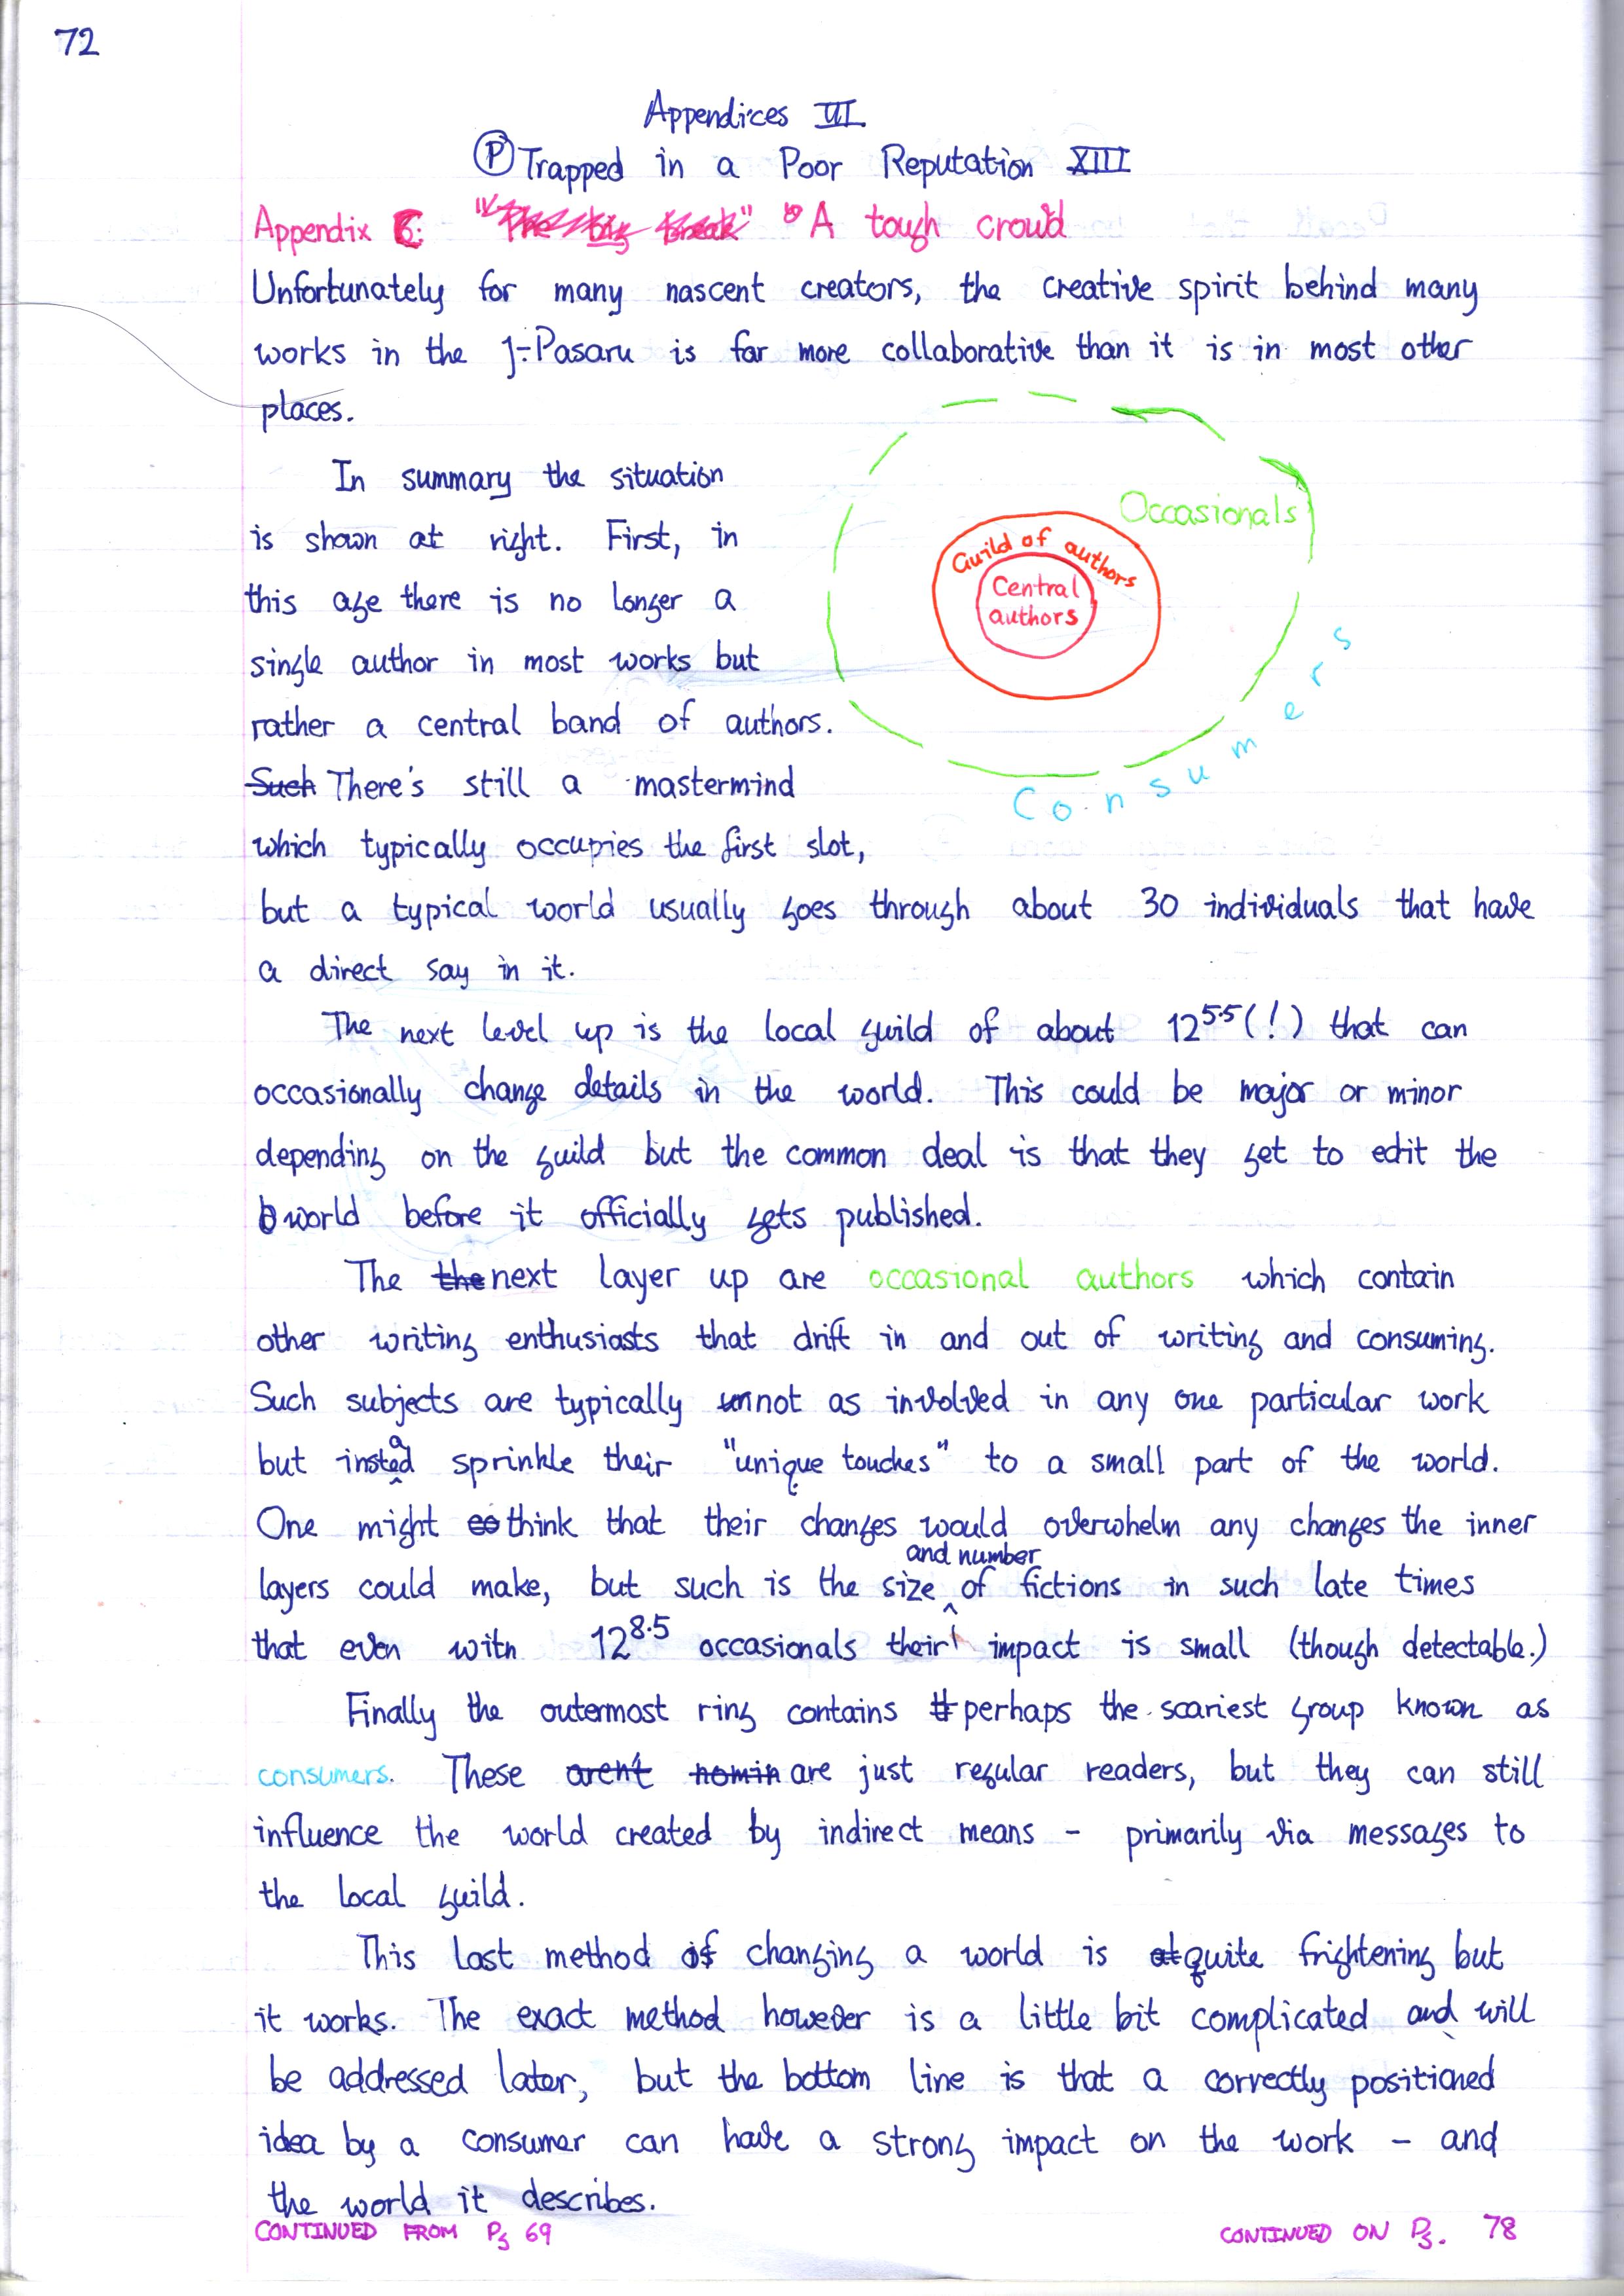 72
Appendices III
Ⓟ Trapped in a Poor Reputation XIII
Appendix C: "The big break" A tough crowd
Unfortunately for many nascent creators, the creative spirit behind many
works in the J-Pasaru is far more collaborative than it is in most other
places.
In summary the situation
is shown at right. First, in
this age there is no longer a
single author in most works but
rather a central band of authors.
Such There's still a mastermind
which typically occupies the first slot,
Occasionals
Guild of authors
Central
authors
Consumers
but a typical world usually goes through about 30 individuals that have
a direct say in it.
The next level up is the local guild of about 12^5.5 (!) that can
occasionally change details in the world. This could be major or minor
depending on the guild but the common deal is that they get to edit the
world before it officially gets published.
The the next layer up are occasional authors which contain
other writing enthusiasts that drift in and out of writing and consuming.
Such subjects are typically not as involved in any one particular work
but instead sprinkle their "unique touches" to a small part of the world.
One might think that their changes would overwhelm any changes the inner
layers could make, but such is the size and number of fictions in such late times
that even with 12^8.5 occasionals their impact is small (though detectable.)
Finally the outermost ring contains perhaps the scariest group known as
consumers. These arent nomin are just regular readers, but they can still
influence the world created by indirect means - primarily via messages to
the local guild.
This last method of changing a world is at quite frightening but
it works. The exact method however is a little bit complicated and will
be addressed later, but the bottom line is that a correctly positioned
idea by a consumer can have a strong impact on the work - and
the world it describes.
CONTINUED FROM Pg 69
CONTINUED ON Pg. 78